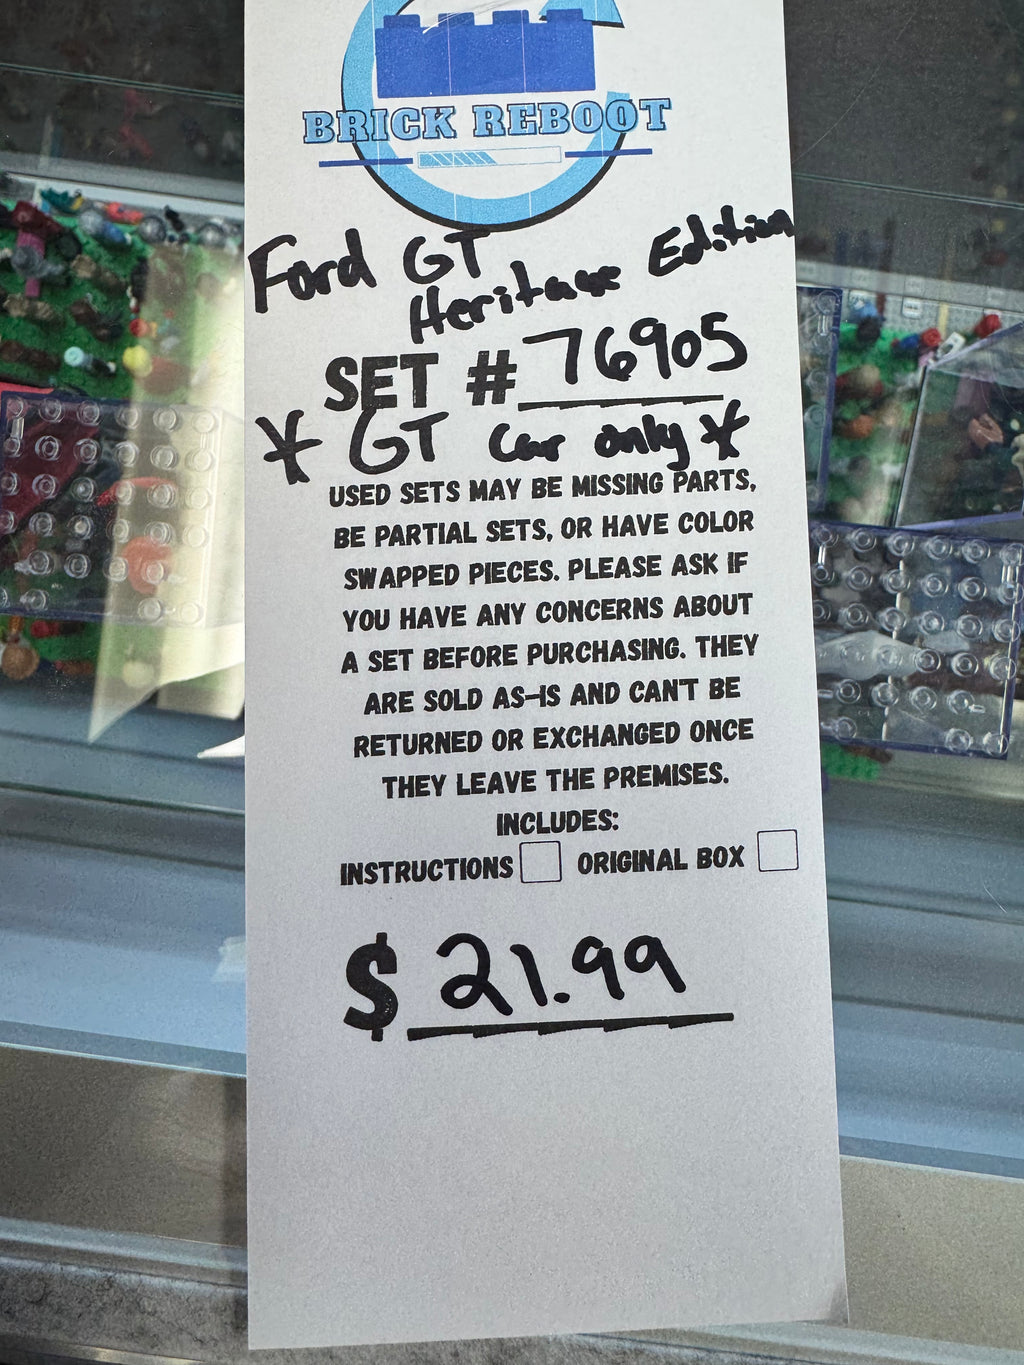 BRICK REBOOT
Ford GT
Heritage Edition
SET # 76905
* GT Car only *
USED SETS MAY BE MISSING PARTS,
BE PARTIAL SETS, OR HAVE COLOR
SWAPPED PIECES. PLEASE ASK IF
YOU HAVE ANY CONCERNS ABOUT
A SET BEFORE PURCHASING. THEY
ARE SOLD AS-IS AND CAN'T BE
RETURNED OR EXCHANGED ONCE
THEY LEAVE THE PREMISES.
INCLUDES:
INSTRUCTIONS ORIGINAL BOX
$ 21.99